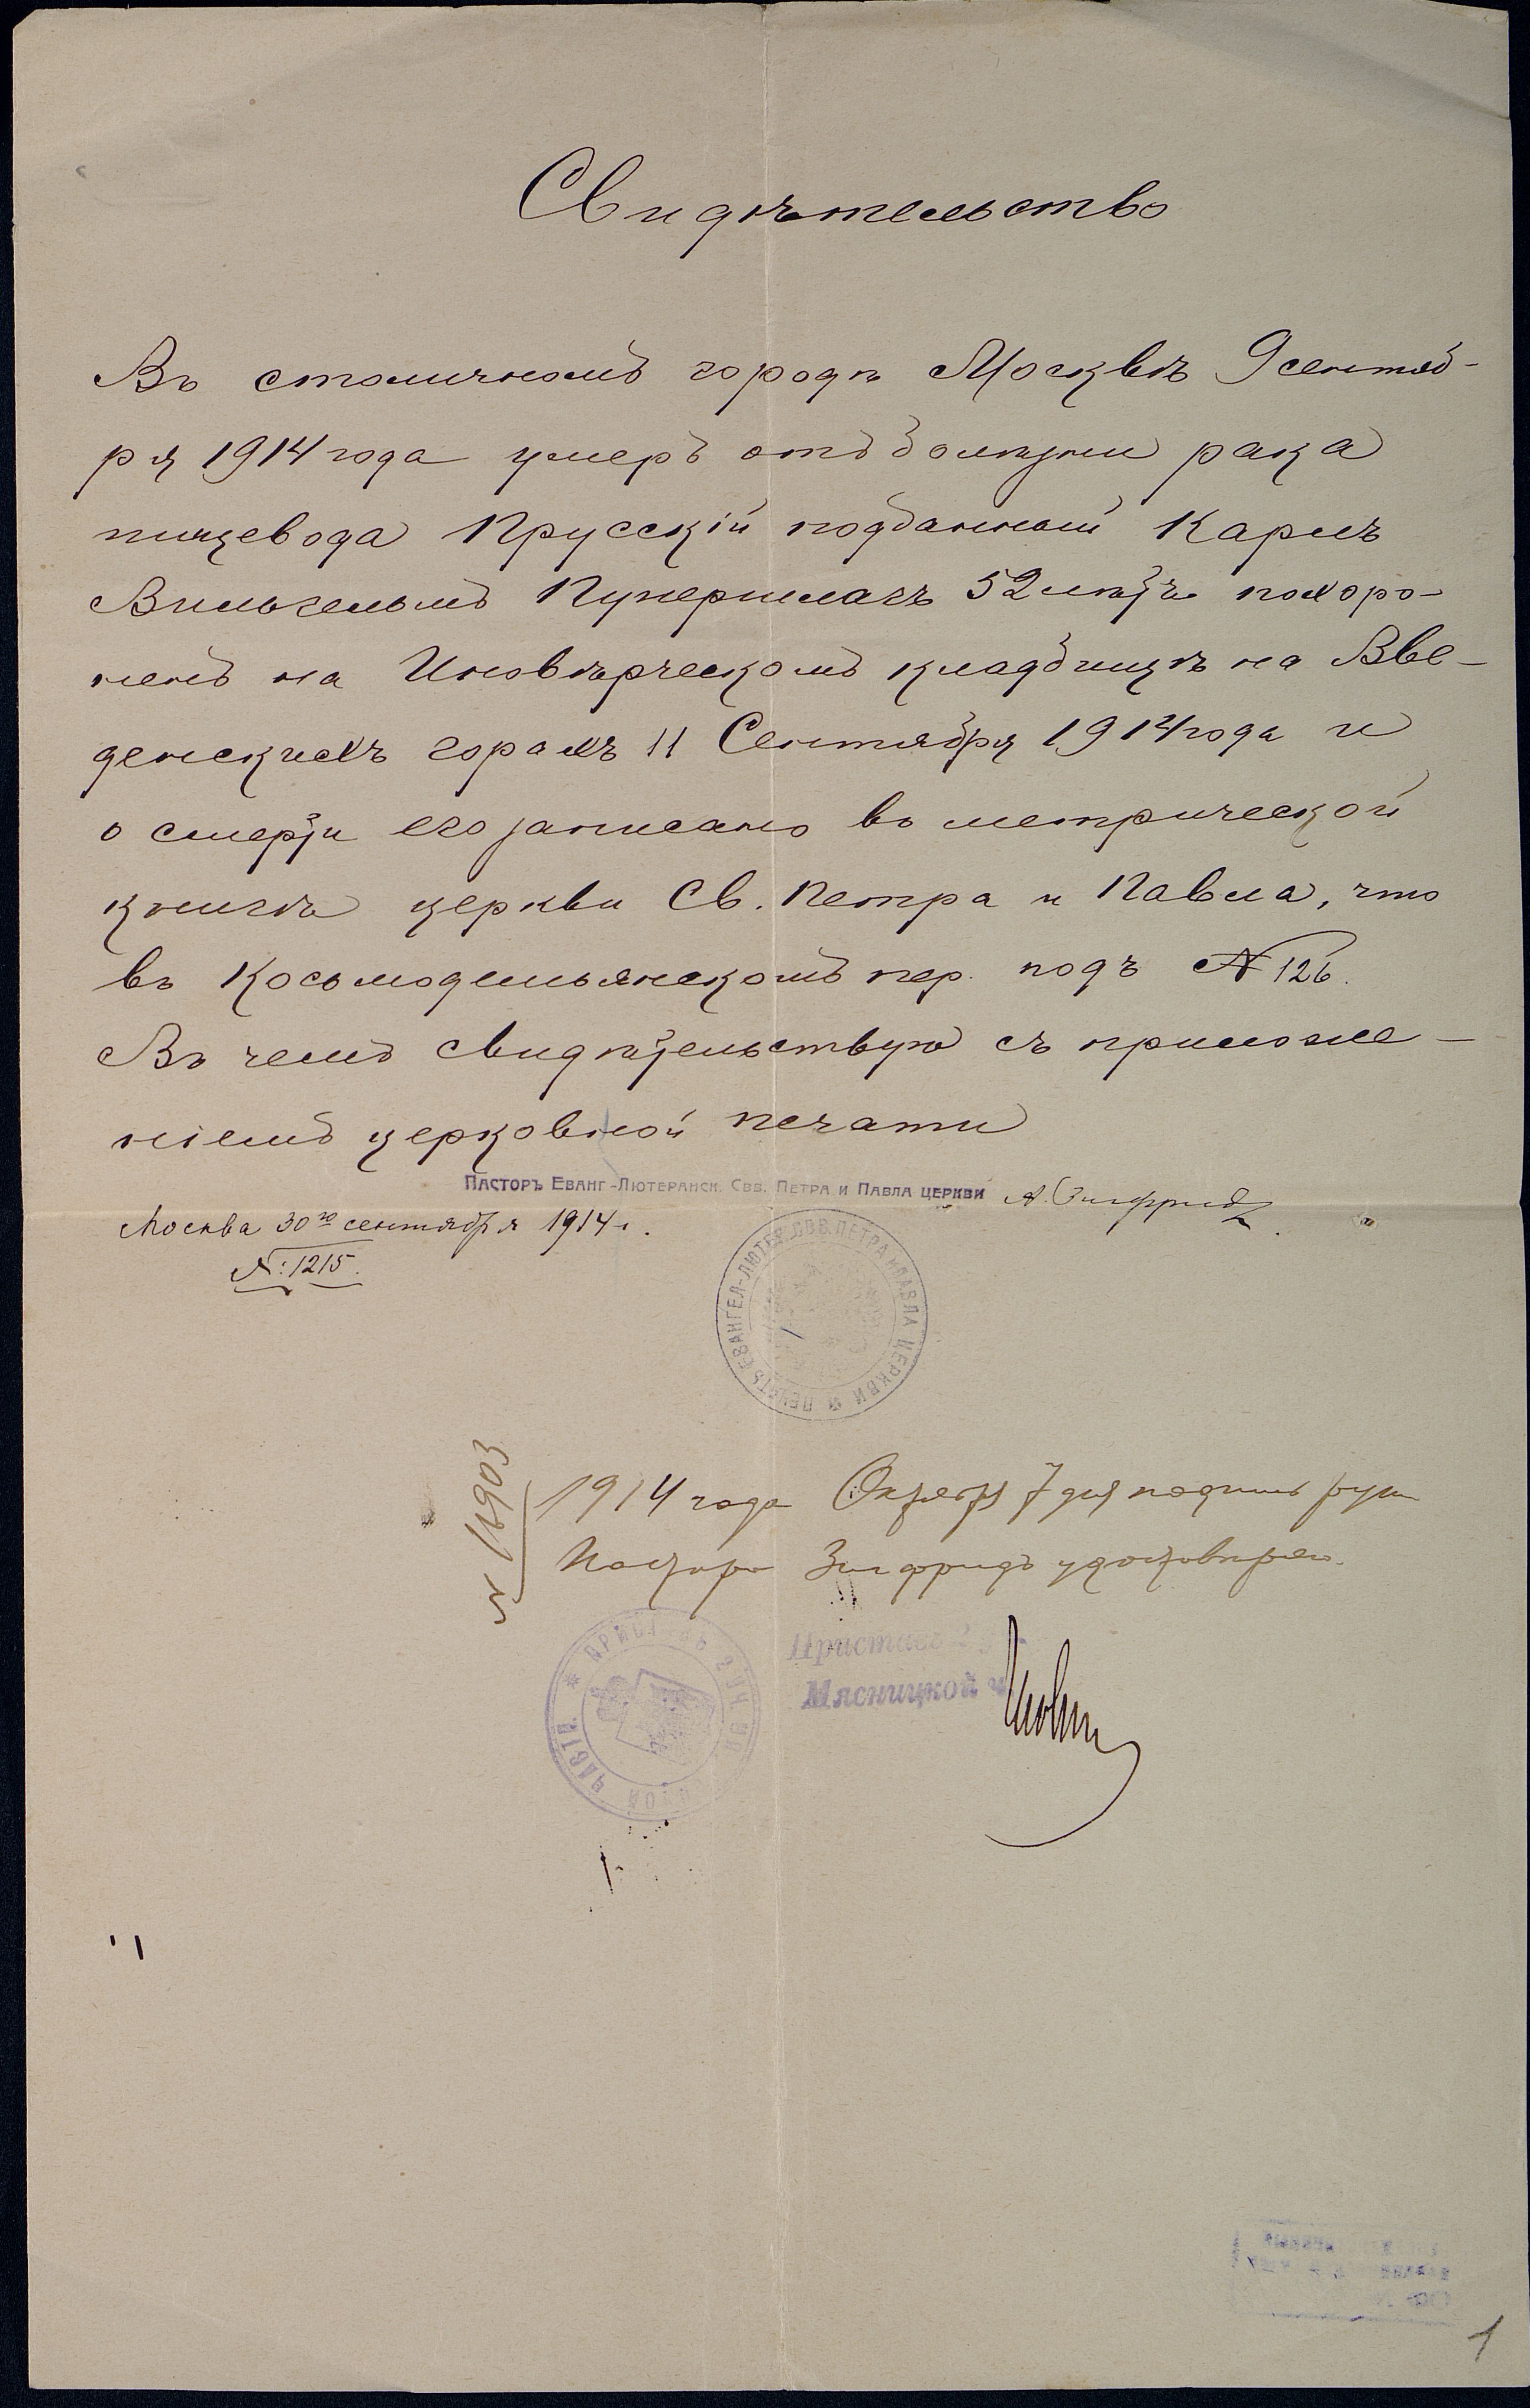 Свидѣтельство
Въ столичномъ городѣ Москвѣ 9 сентяб-
ря 1914 года умеръ отъ болѣзни рака
пищевода Прусскій подданный Карлъ
Вильгельмъ 52 лѣтъ похоро-
ненъ на Иновѣрческомъ кладбищѣ на Вве-
денскихъ горахъ 11 Сентября 1914 года и
о смерти его записано въ метрической
книгѣ церкви Св. Петра и Павла, что
въ Косьмодемьянскомъ пер. подъ № 126.
Въ чемъ свидѣтельствую съ приложе-
ніемъ церковной печати
Пасторъ Еванг-Лютеранск. Свв. Петра и Павла церкви А. Зигфридъ.
Москва 30го сентября 1914 г.
№: 1215.
ПЕЧАТЬ ЕВАНГЕЛ-ЛЮТЕР. СВВ. ПЕТРА И ПАВЛА ЦЕРКВИ
№ 16903
1914 года Октября 7 дня подпись руки
Пастора Зигфридъ удостовѣряю.
ПРИСТАВЪ 2 УЧ. ЧАСТИ
Приставъ 2
Мясницкой ч
1